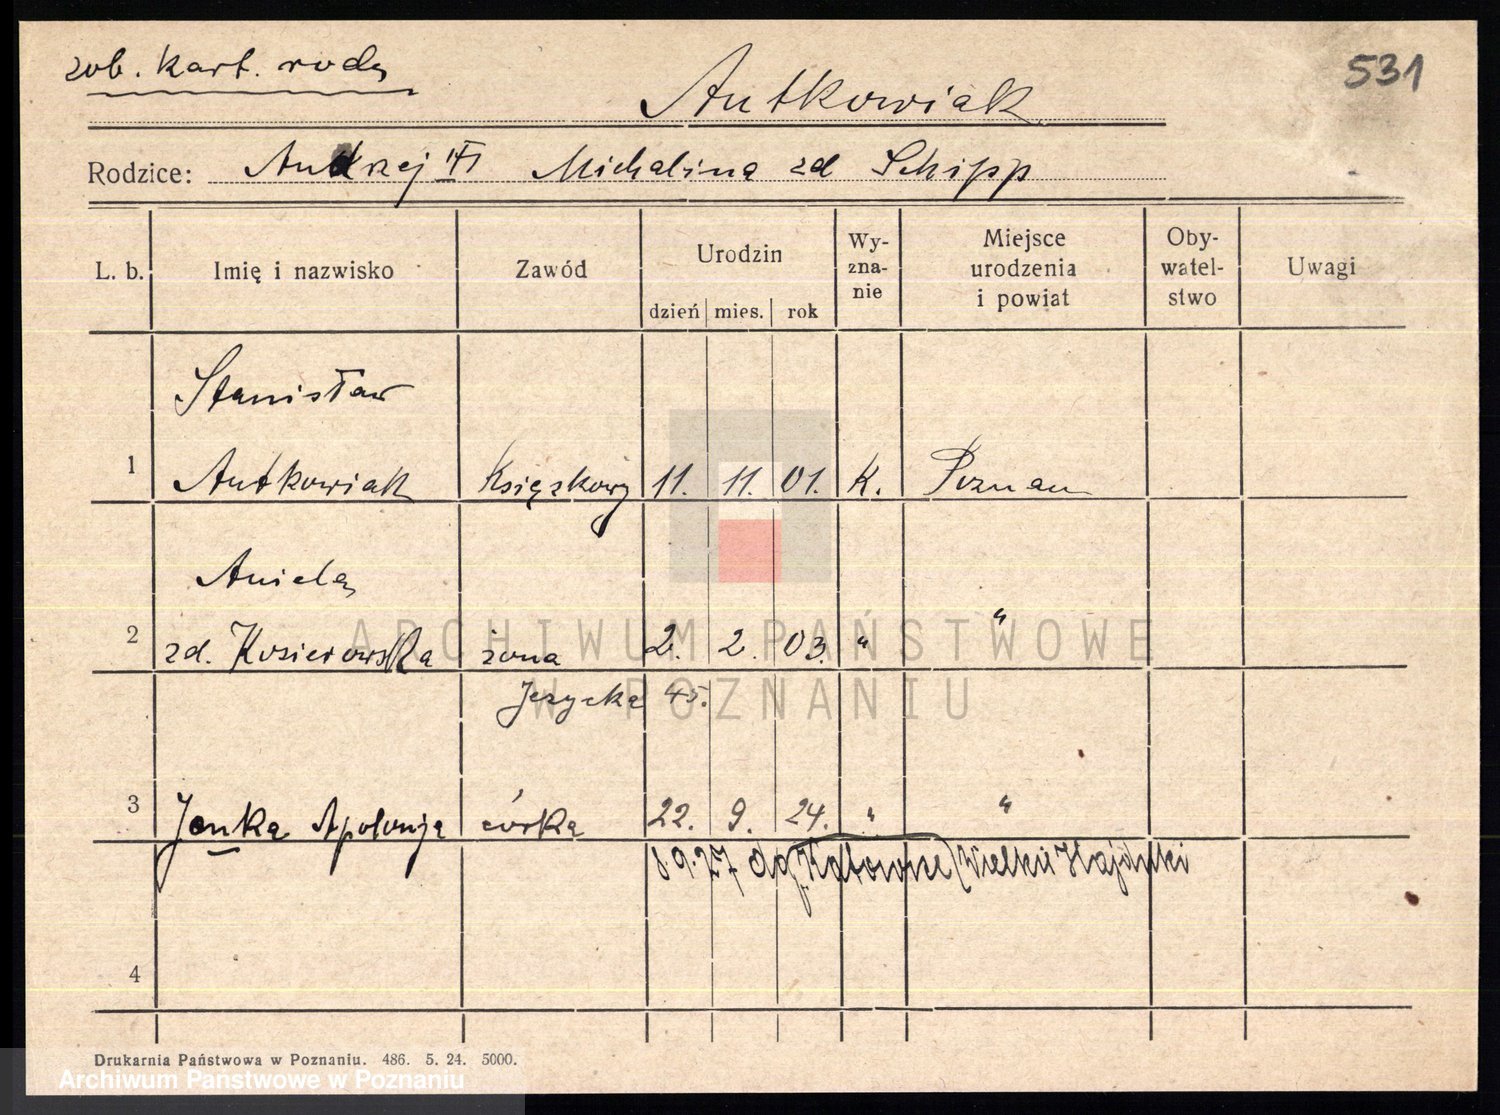 zob. kart. rodz
531
Antkowiak
Rodzice: Andrzej Michalina zd Schipp
L. b. Imię i nazwisko Zawód Urodzin Wy-zna-nie Miejsce urodzenia i powiat Oby-watel-stwo Uwagi
dzień mies. rok
Stanisław
1 Antkowiak Książkowy 11. 11. 01. K. Poznań
Aniela
2 zd. Kosierowska żona 2. 2. 03. " "
Jeżycka 45.
3 Janka Apolonja córka 22. 9. 24. " "
8.9.27 do Katowice (Wielkie Hajduki
4
Drukarnia Państwowa w Poznaniu. 486. 5. 24. 5000.
ARCHIWUM PAŃSTWOWE
W POZNANIU
Archiwum Panstwowe w Poznaniu